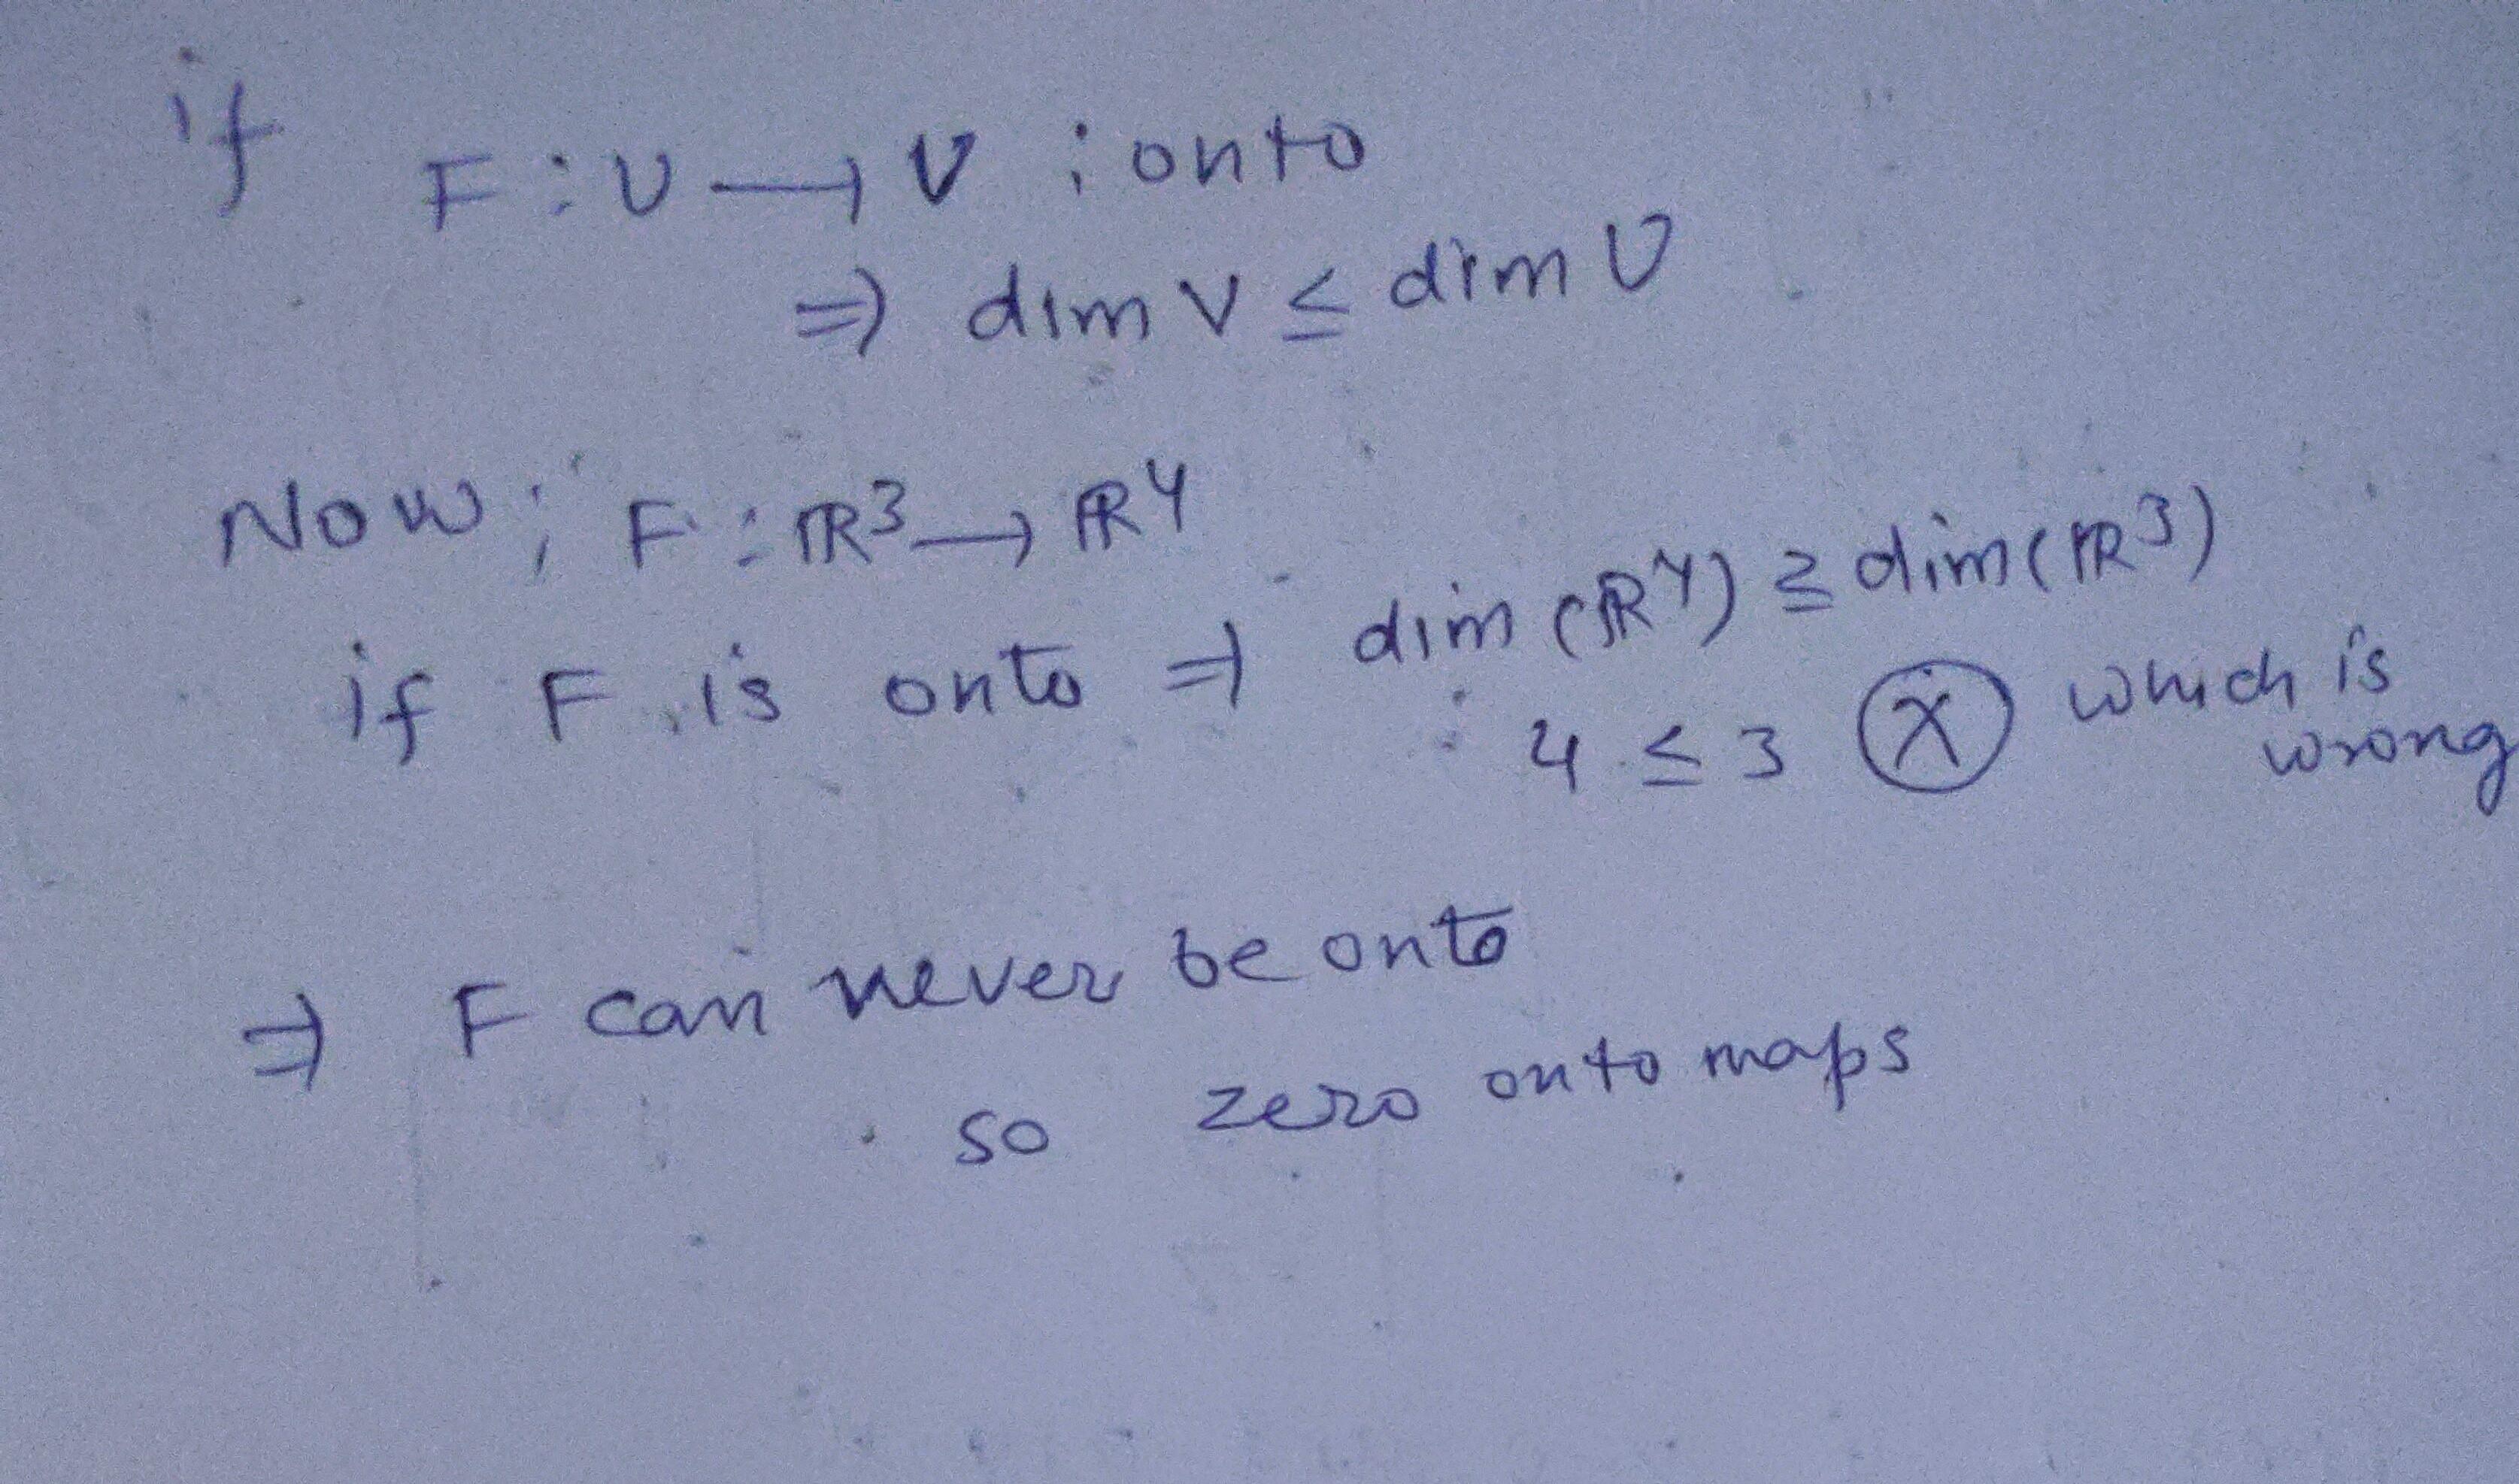 if F : U → V ; onto
⇒ dim V ≤ dim U
Now ; F : ℝ³ → ℝ⁴
if F is onto ⇒ dim (ℝ⁴) ≥ dim (ℝ³)
4 ≤ 3 ⓧ which is wrong
⇒ F can never be onto
so zero onto maps